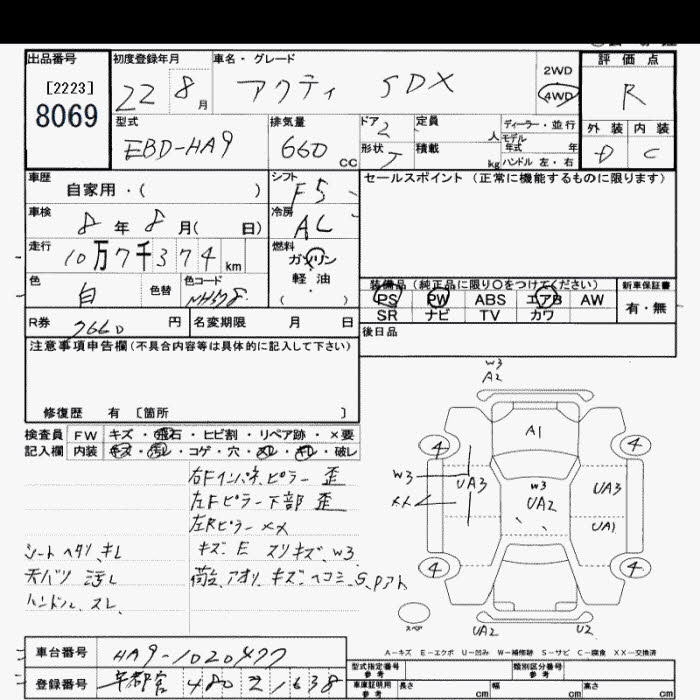 出品番号 初度登録年月 車名・グレード 評価点
[2223] 8069
22 8月 アクティ SDX 2WD 4WD R
型式 排気量 ドア 2 定員 人 ディーラー・並行 外装 内装
モデル年式 年
EBD-HA9 660 CC 形状 積載 kg ハンドル 左・右 D C
車歴 自家用・( ) シフト F5 セールスポイント (正常に機能するものに限ります)
車検 8年 8月( 日) 冷房 AC
走行 10万7千374 km 燃料 ガソリン 軽油 ( ・ )
色 白 色替 色コード NH578
装備品 (純正品に限り○をつけてください) 新車保証書
PS PW ABS エアB AW 有・無
SR ナビ TV カワ
R券 7660 円 名変期限 月 日
後日品
注意事項申告欄(不具合内容等は具体的に記入して下さい)
修復歴 有 〔箇所 〕
検査員 FW キズ・飛石・ヒビ割・リペア跡・×要
記入欄 内装 キズ・汚レ・コゲ・穴・スレ・キレ・破レ
右Fインパネ.ピラー 歪
左Fピラー下部 歪
左Rピラー ××
シート ヘタリ、キレ キズ.E スリキズ、W3
天バリ 汚レ 荷台、アオリ、キズ、ヘコミ、S
ハンドル、スレ、
W3
A2
A1
4 4
W3 UA3 W3 UA2 UA3
××
UA1
4 4
スペア UA2 U2
A-キズ E-エクボ U-凹み W-補修跡 S-サビ C-腐食 XX-交換済
車台番号 HA9-1020477
登録番号 京都 480 1638
型式指定番号 参考 類別区分番号 参考
車庫証明用 参考 長さ cm 幅 cm 高さ cm